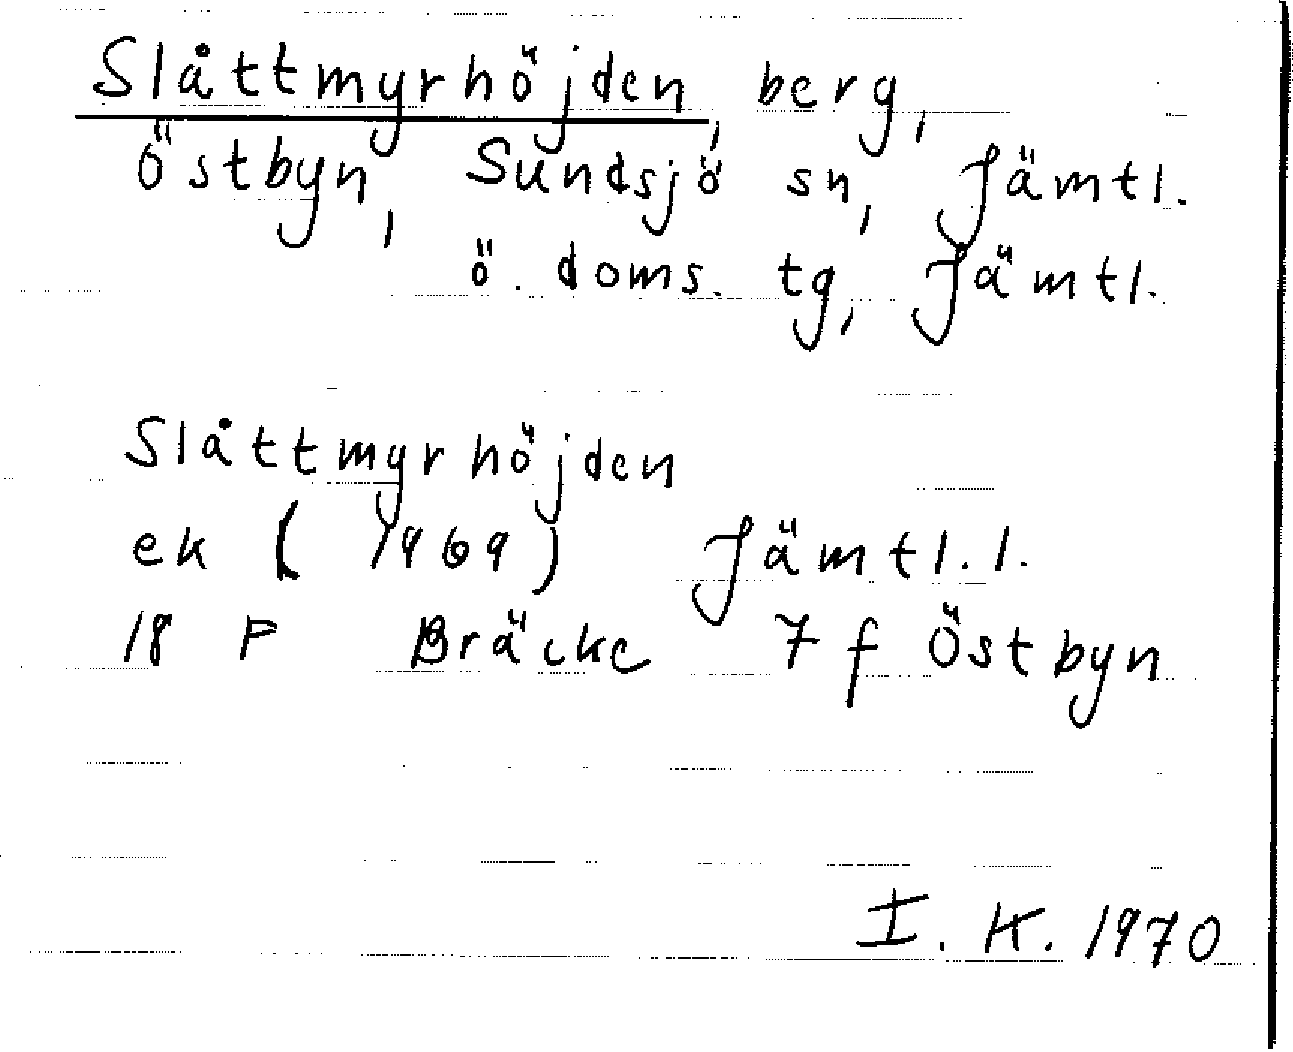 Slåttmyrhöjden, berg,
Östbyn, Sundsjö sn, Jämtl.
ö. doms. tg, Jämtl.
Slåttmyrhöjden
ek ( 1969) Jämtl. l.
18 F Bräcke 7 f Östbyn
I. K. 1970